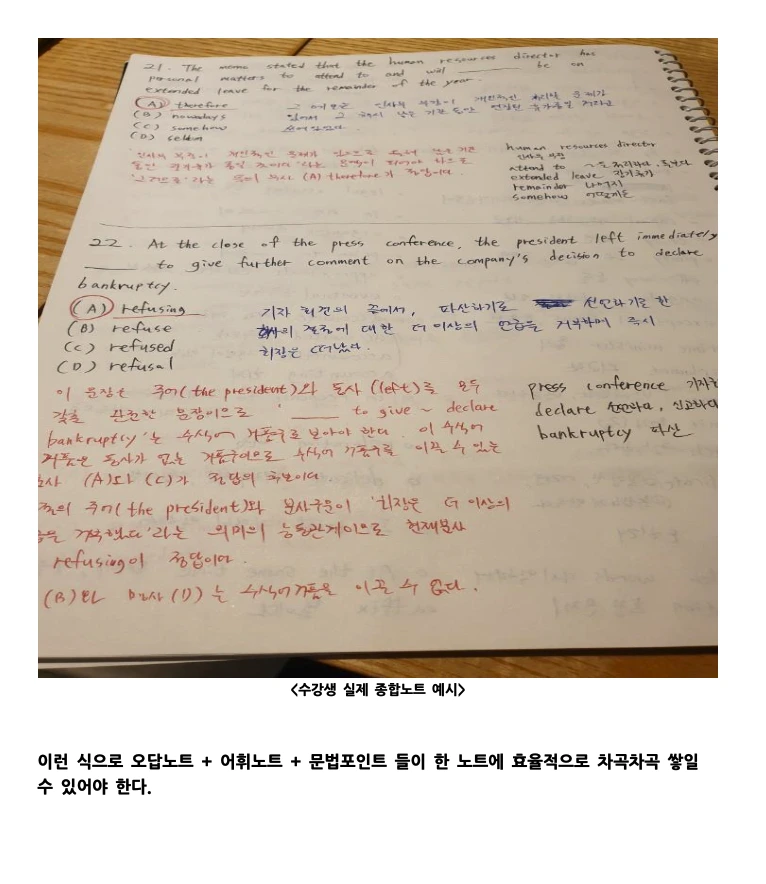 21. The memo stated that the human resources director has
personal matters to attend to and will ______ be on
extended leave for the remainder of the year.
(A) therefore
(B) nowadays
(C) somehow
(D) seldom
human resources director
인사부 부장
attend to ~을 처리하다, 돌보다
extended leave 장기휴가
remainder 나머지
somehow 어떻게든
22. At the close of the press conference, the president left immediately
______ to give further comment on the company's decision to declare
bankruptcy.
(A) refusing
(B) refuse
(C) refused
(D) refusal
기자 회견의 끝에서, 파산하기로 선언하기로 한
회사의 결정에 대한 더 이상의 언급을 거부하며 즉시
회장은 떠났다.
이 문장은 주어(the president)와 동사(left)를 모두
갖춘 완전한 문장이므로 '______ to give ~ declare
bankruptcy'는 수식어 거품구로 보아야 한다. 이 수식어
거품은 동사가 없는 거품구이므로 수식어 거품구를 이끌 수 있는
(A)와 (C)가 정답의 후보이다.
주어(the president)와 분사구문이 '회장은 더 이상의
거부했다'라는 의미의 능동관계이므로 현재분사
refusing이 정답이다.
(B)와 명사 (D)는 수식어거품을 이끌 수 없다.
press conference 기자회견
declare 선언하다, 신고하다
bankruptcy 파산
<수강생 실제 종합노트 예시>
이런 식으로 오답노트 + 어휘노트 + 문법포인트 들이 한 노트에 효율적으로 차곡차곡 쌓일
수 있어야 한다.